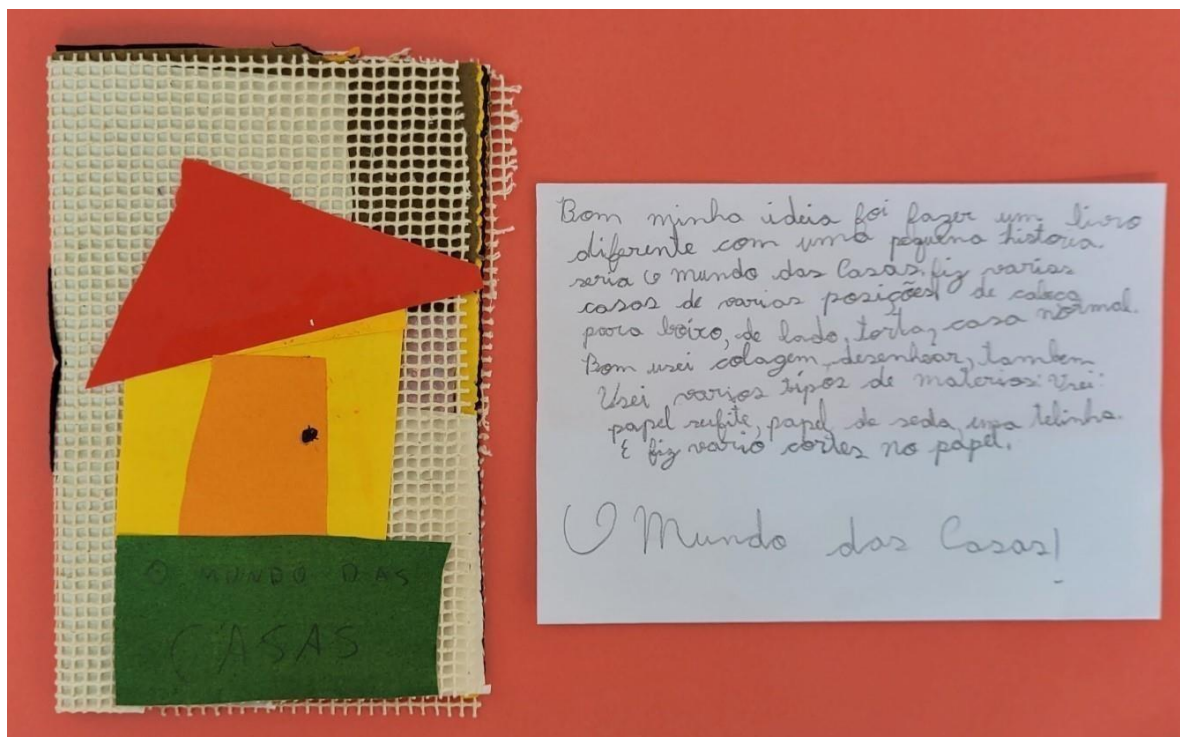 O MUNDO DAS
CASAS
Bom minha idéia foi fazer um livro
diferente com uma pequena historia.
seria O mundo das Casas. fiz varias
casas de varias posições de cabeça
para baixo, de lado, torta, casa normal.
Bom usei colagem, desenhoar, tambem
Usei varios tipos de materios: Usei:
papel sufite, papel de seda, uma telinha.
E fiz vario cortes no papel.
O Mundo das Casas!